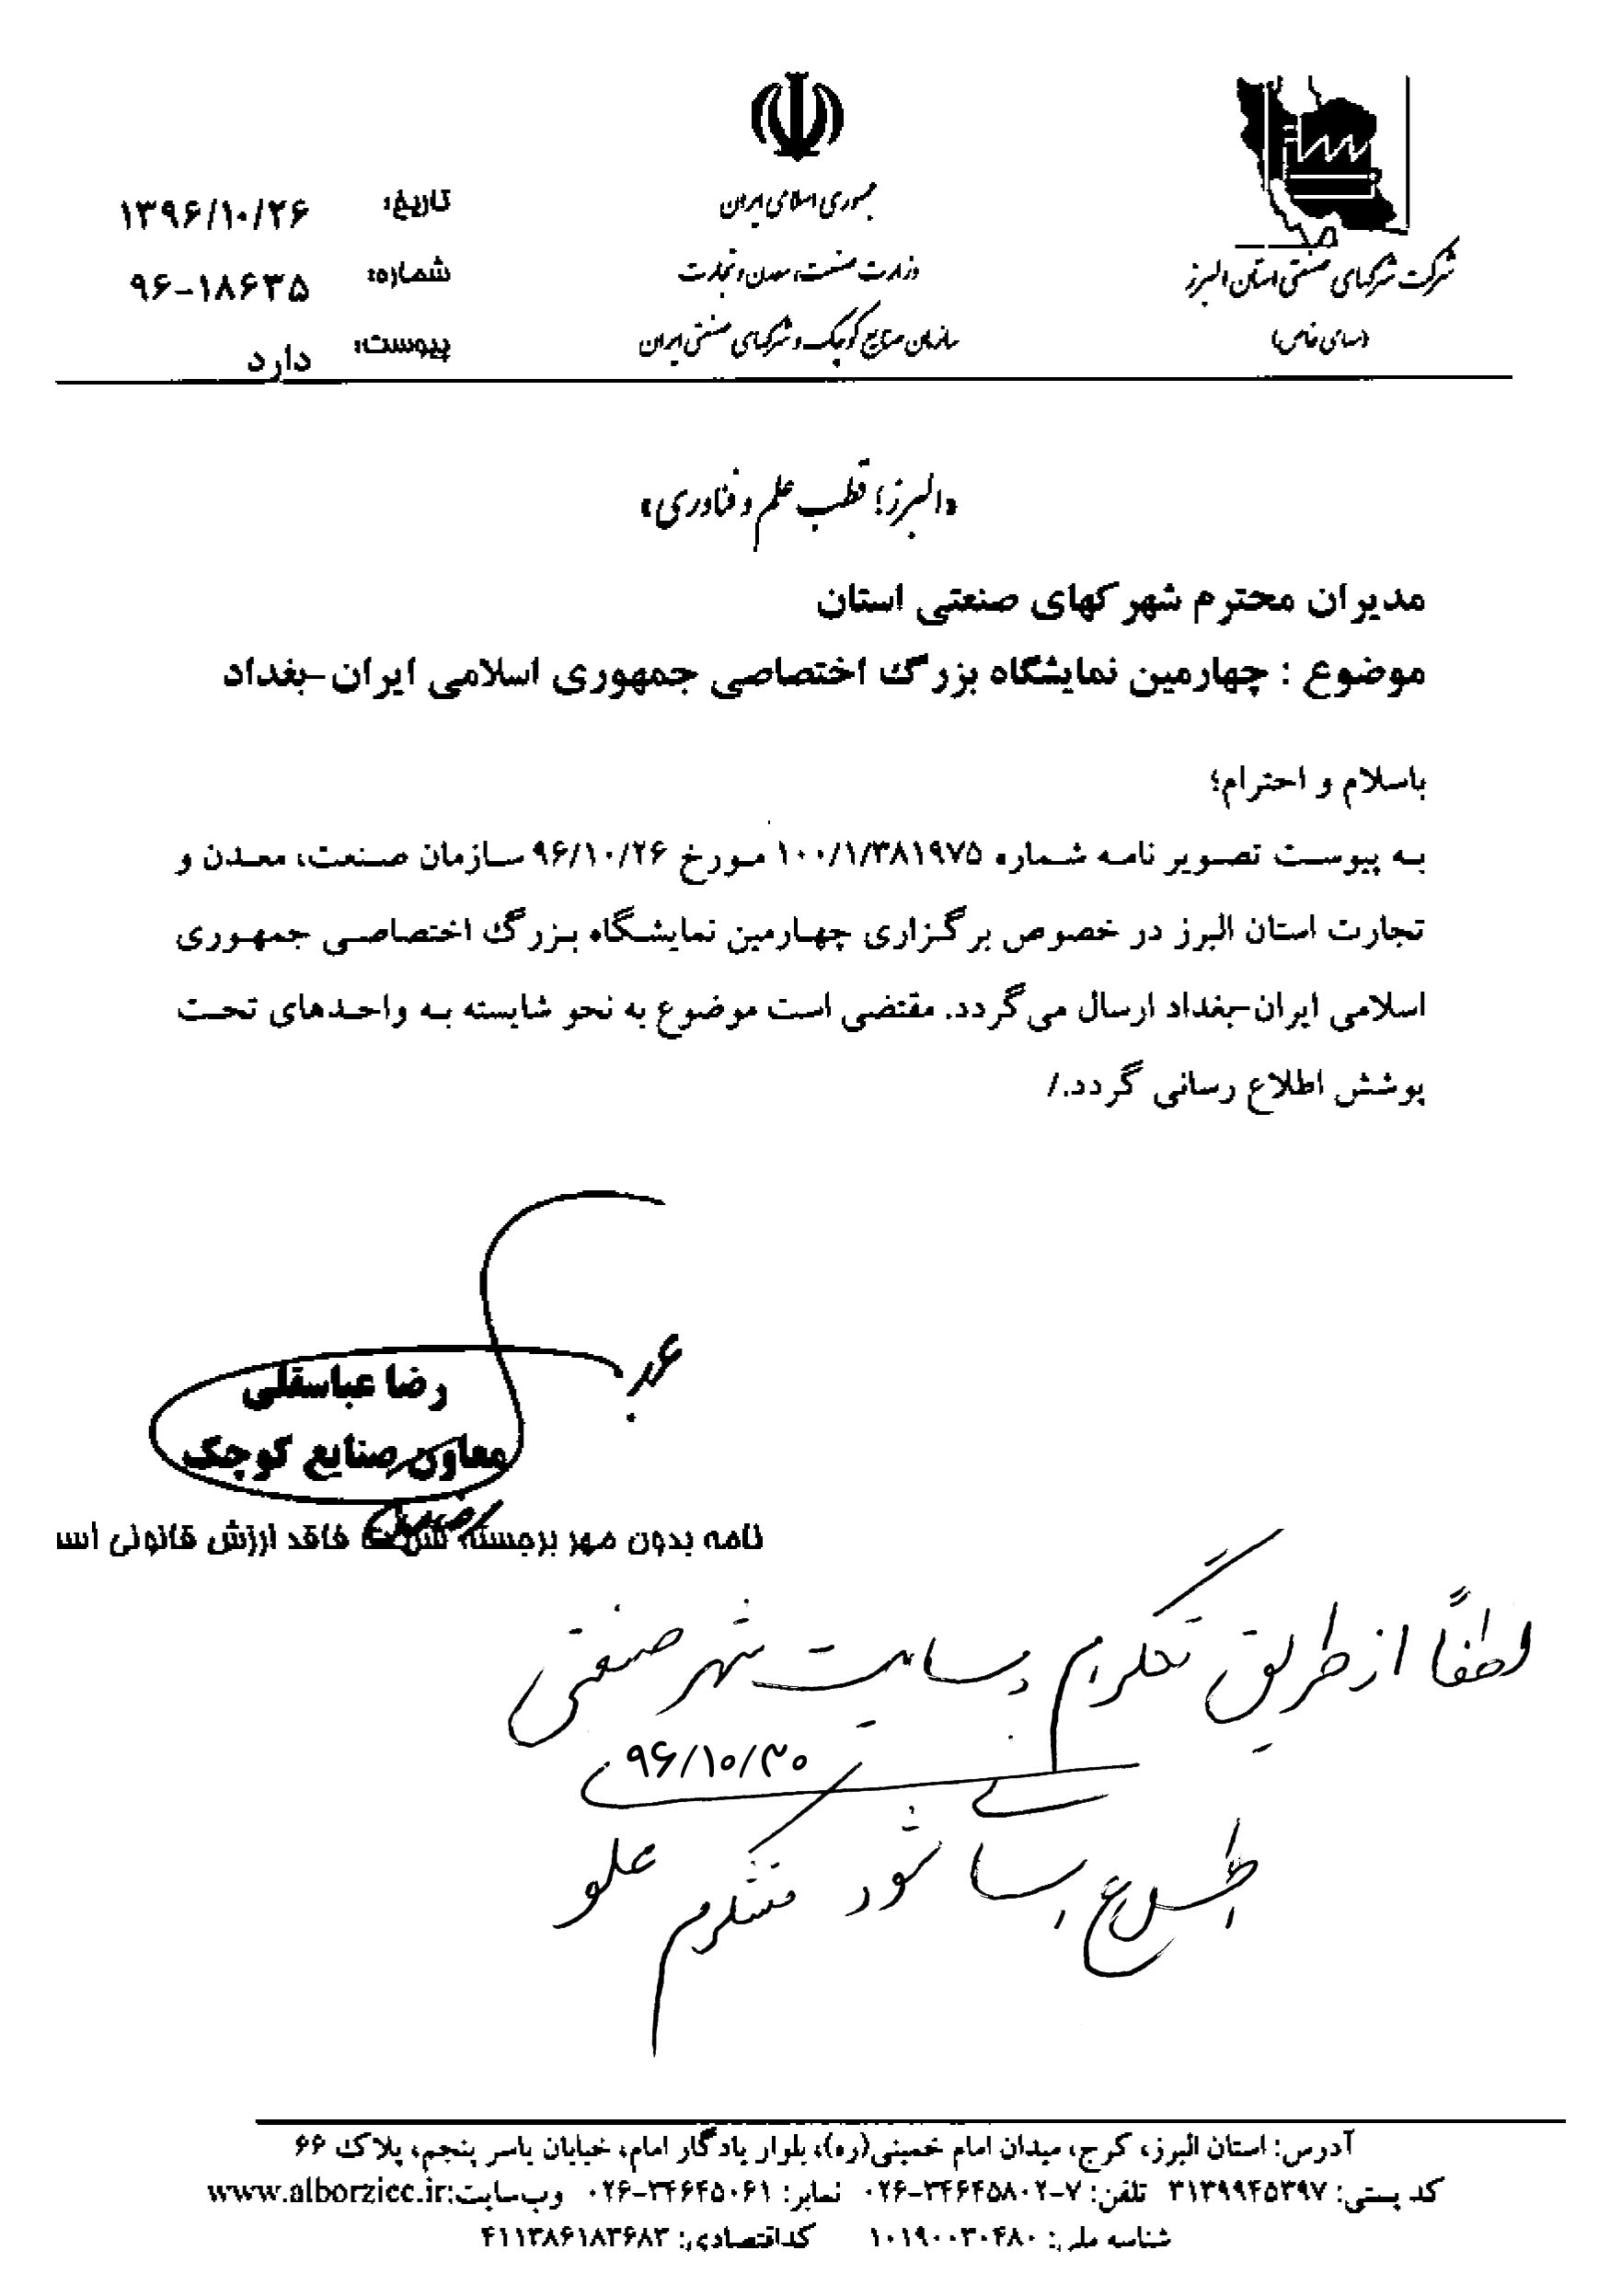 شرکت شهرکهای صنعتی استان البرز
(سهامی خاص)
جمهوری اسلامی ایران
وزارت صنعت، معدن و تجارت
سازمان صنایع کوچک و شهرکهای صنعتی ایران
تاریخ: ۱۳۹۶/۱۰/۲۶
شماره: ۹۶-۱۸۶۳۵
پیوست: دارد
«البرز؛ قطب علم و فناوری»
مدیران محترم شهرکهای صنعتی استان
موضوع : چهارمین نمایشگاه بزرگ اختصاصی جمهوری اسلامی ایران-بغداد
باسلام و احترام؛
به پیوست تصویر نامه شماره ۱۰۰/۱/۳۸۱۹۷۵ مورخ ۹۶/۱۰/۲۶ سازمان صنعت، معدن و
تجارت استان البرز در خصوص برگزاری چهارمین نمایشگاه بزرگ اختصاصی جمهوری
اسلامی ایران-بغداد ارسال می‌گردد. مقتضی است موضوع به نحو شایسته به واحدهای تحت
پوشش اطلاع رسانی گردد./
رضا عباسقلی
معاون صنایع کوچک
نامه بدون مهر برجسته شرکت فاقد ارزش قانونی اس
لطفاً از طریق تلگرام سایت شهر صنعتی
۹۶/۱۰/۳۰
شود متشکرم
آدرس: استان البرز، کرج، میدان امام خمینی(ره)، بلوار یادگار امام، خیابان یاسر پنجم، پلاک ۶۶
کد پستی: ۳۱۳۹۹۴۵۳۹۷ تلفن: ۷-۰۲۶-۳۴۶۴۵۸۰۲ نمابر: ۰۲۶-۳۴۶۴۵۰۶۱ وب‌سایت:www.alborziec.ir
شناسه ملی: ۱۰۱۹۰۰۳۰۴۸۰ کداقتصادی: ۴۱۱۳۸۶۱۸۳۶۸۳